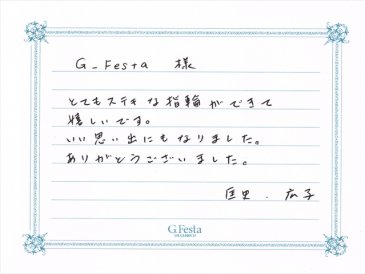 G-Festa 様
とてもステキな指輪ができて
嬉しいです。
いい思い出にもなりました。
ありがとうございました。
匡史・広子
G.Festa